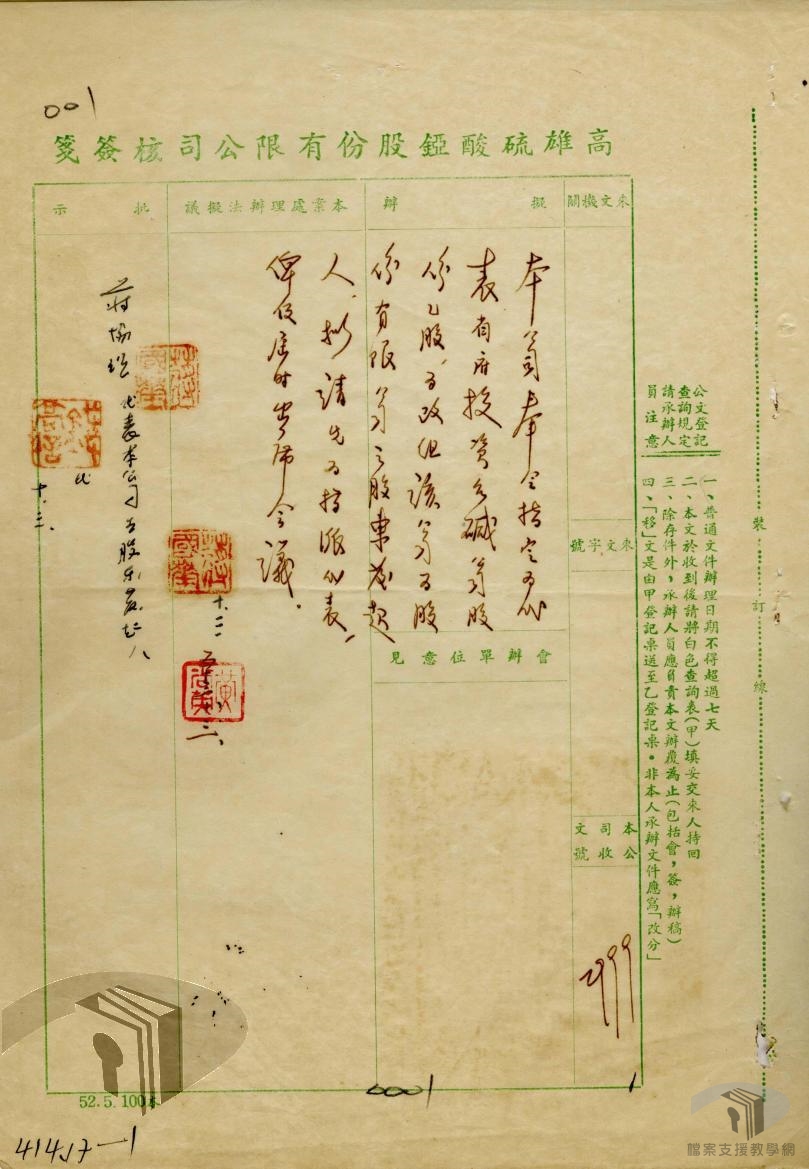 001
高雄硫酸錏股份有限公司核簽箋
公文登記
查詢規定
請承辦人
員注意
一、普通文件辦理日期不得超過七天
二、本文於收到後請將白色查詢表(甲)填妥交來人持回
三、除存件外，承辦人員應負責本文辦覆為止(包括會，簽，辦稿)
四、「移」文是由甲登記桌送至乙登記桌．非本人承辦文件應寫「改分」
裝訂線
來文機關
來文字號
本公司收文號
擬辦
會辦單位意見
本案處理辦法擬議
批示
本公司奉令指定為代
表省府投資台碱公司股
份乙股，為改組該公司為股
份有限公司之股東發起
人，擬請先為指派代表，
俾便屆時出席會議。
十、二
黃
代表本公司為股東發起人
十、三、
52.5.100本
0001
1
41457-1
檔案支援教學網